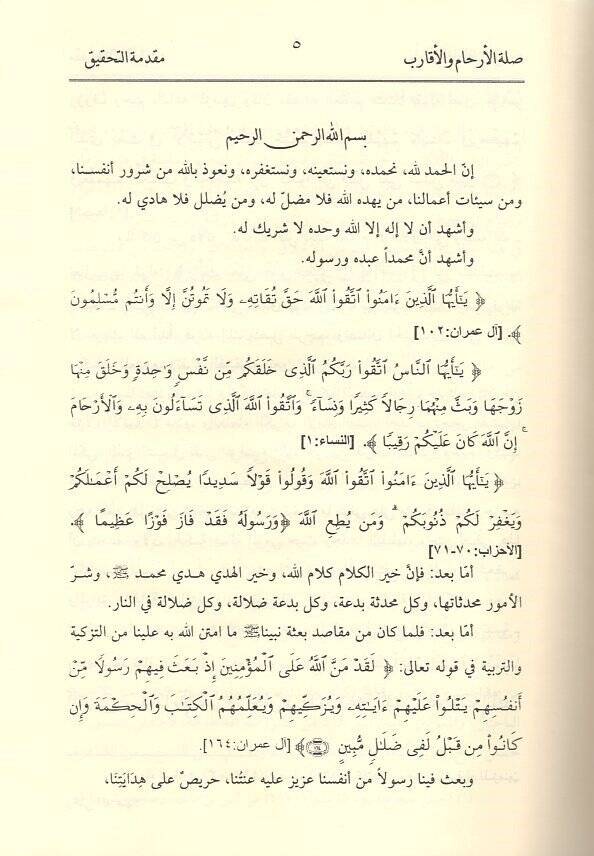 صلة الأرحام والأقارب ٥ مقدمة التحقيق
بسم الله الرحمن الرحيم
إنّ الحمد لله، نحمده، ونستعينه، ونستغفره، ونعوذ بالله من شرور أنفسنا،
ومن سيئات أعمالنا، من يهده الله فلا مضلّ له، ومن يُضلل فلا هادي له.
وأشهد أن لا إله إلا الله وحده لا شريك له.
وأشهد أنَّ محمداً عبده ورسوله.
﴿ يَـٰٓأَيُّهَا ٱلَّذِينَ ءَامَنُواْ ٱتَّقُواْ ٱللَّهَ حَقَّ تُقَاتِهِۦ وَلَا تَمُوتُنَّ إِلَّا وَأَنتُم مُّسْلِمُونَ
﴾. [آل عمران:١٠٢]
﴿ يَـٰٓأَيُّهَا ٱلنَّاسُ ٱتَّقُواْ رَبَّكُمُ ٱلَّذِى خَلَقَكُم مِّن نَّفْسٍ وَٰحِدَةٍ وَخَلَقَ مِنْهَا
زَوْجَهَا وَبَثَّ مِنْهُمَا رِجَالاً كَثِيرًا وَنِسَآءً ۚ وَٱتَّقُواْ ٱللَّهَ ٱلَّذِى تَسَآءَلُونَ بِهِۦ وَٱلْأَرْحَامَ
ۚ إِنَّ ٱللَّهَ كَانَ عَلَيْكُمْ رَقِيبًا ﴾. [النساء:١]
﴿ يَـٰٓأَيُّهَا ٱلَّذِينَ ءَامَنُواْ ٱتَّقُواْ ٱللَّهَ وَقُولُواْ قَوْلاً سَدِيدًا يُصْلِحْ لَكُمْ أَعْمَـٰلَكُمْ
وَيَغْفِرْ لَكُمْ ذُنُوبَكُمْ ۗ وَمَن يُطِعِ ٱللَّهَ ﴿وَرَسُولَهُۥ فَقَدْ فَازَ فَوْزًا عَظِيمًا ﴾.
[الأحزاب:٧٠-٧١]
أمّا بعد: فإنَّ خير الكلام كلام الله، وخير الهدي هدي محمد ﷺ، وشرّ
الأمور محدثاتها، وكل محدثة بدعة، وكل بدعة ضلالة، وكل ضلالة في النار.
أمّا بعد: فلما كان من مقاصد بعثة نبيناﷺ ما امتن الله به علينا من التزكية
والتربية في قوله تعالى: ﴿ لَقَدْ مَنَّ ٱللَّهُ عَلَى ٱلْمُؤْمِنِينَ إِذْ بَعَثَ فِيهِمْ رَسُولاً مِّنْ
أَنفُسِهِمْ يَتْلُواْ عَلَيْهِمْ ءَايَـٰتِهِۦ وَيُزَكِّيهِمْ وَيُعَلِّمُهُمُ ٱلْكِتَـٰبَ وَٱلْحِكْمَةَ وَإِن
كَانُواْ مِن قَبْلُ لَفِى ضَلَـٰلٍ مُّبِينٍ ﴿١٦٤﴾﴾ [آل عمران:١٦٤].
وبعث فينا رسولاً من أنفسنا عزيز عليه عنتُنا، حريصٌ على هِدَايَتِنَا،